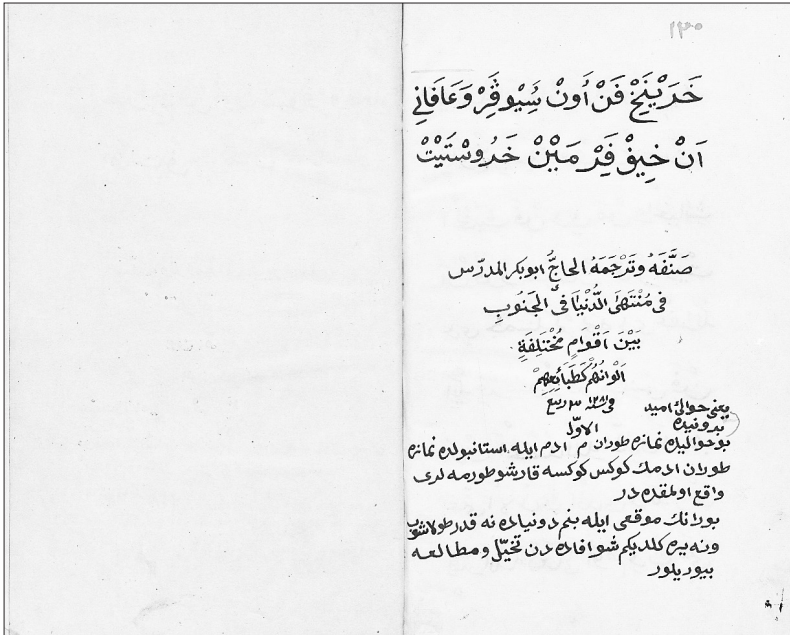 ١٣٠
خَدَيْنَخْ فَنْ أُونْ سُيُوڤَرْ وَعَافَانِي
اَنْ خِيفْ فَرِ مَيْنْ خَدُوسْتَيْتْ
صَنَّفَهُ وَتَرْجَمَهُ الحَاجُّ ابوبكر المدرّس
فى مُنْتَهَى الدُّنْيَا فى الجَنُوبِ
بَيْنَ اَقْوَامٍ مُخْتَلِفَةٍ
اَلْوَانُهُمْ كَطَبَائِعِهِمْ
فى ٣ ربيع
الاوّل
يعنى حوالئ اميد
بوحواليده نمازه طوران ادم ايله استانبولده نمازه
طوران ادمك كوكس كوكسه قارشو طورمه لرى
واقع اولمقده در
بورانك موقعى ايله بنم دونياده نه قدر طولاشوب
ونه يره كلديكم شو افاده دن تخيّل ومطالعه
بيوريلور